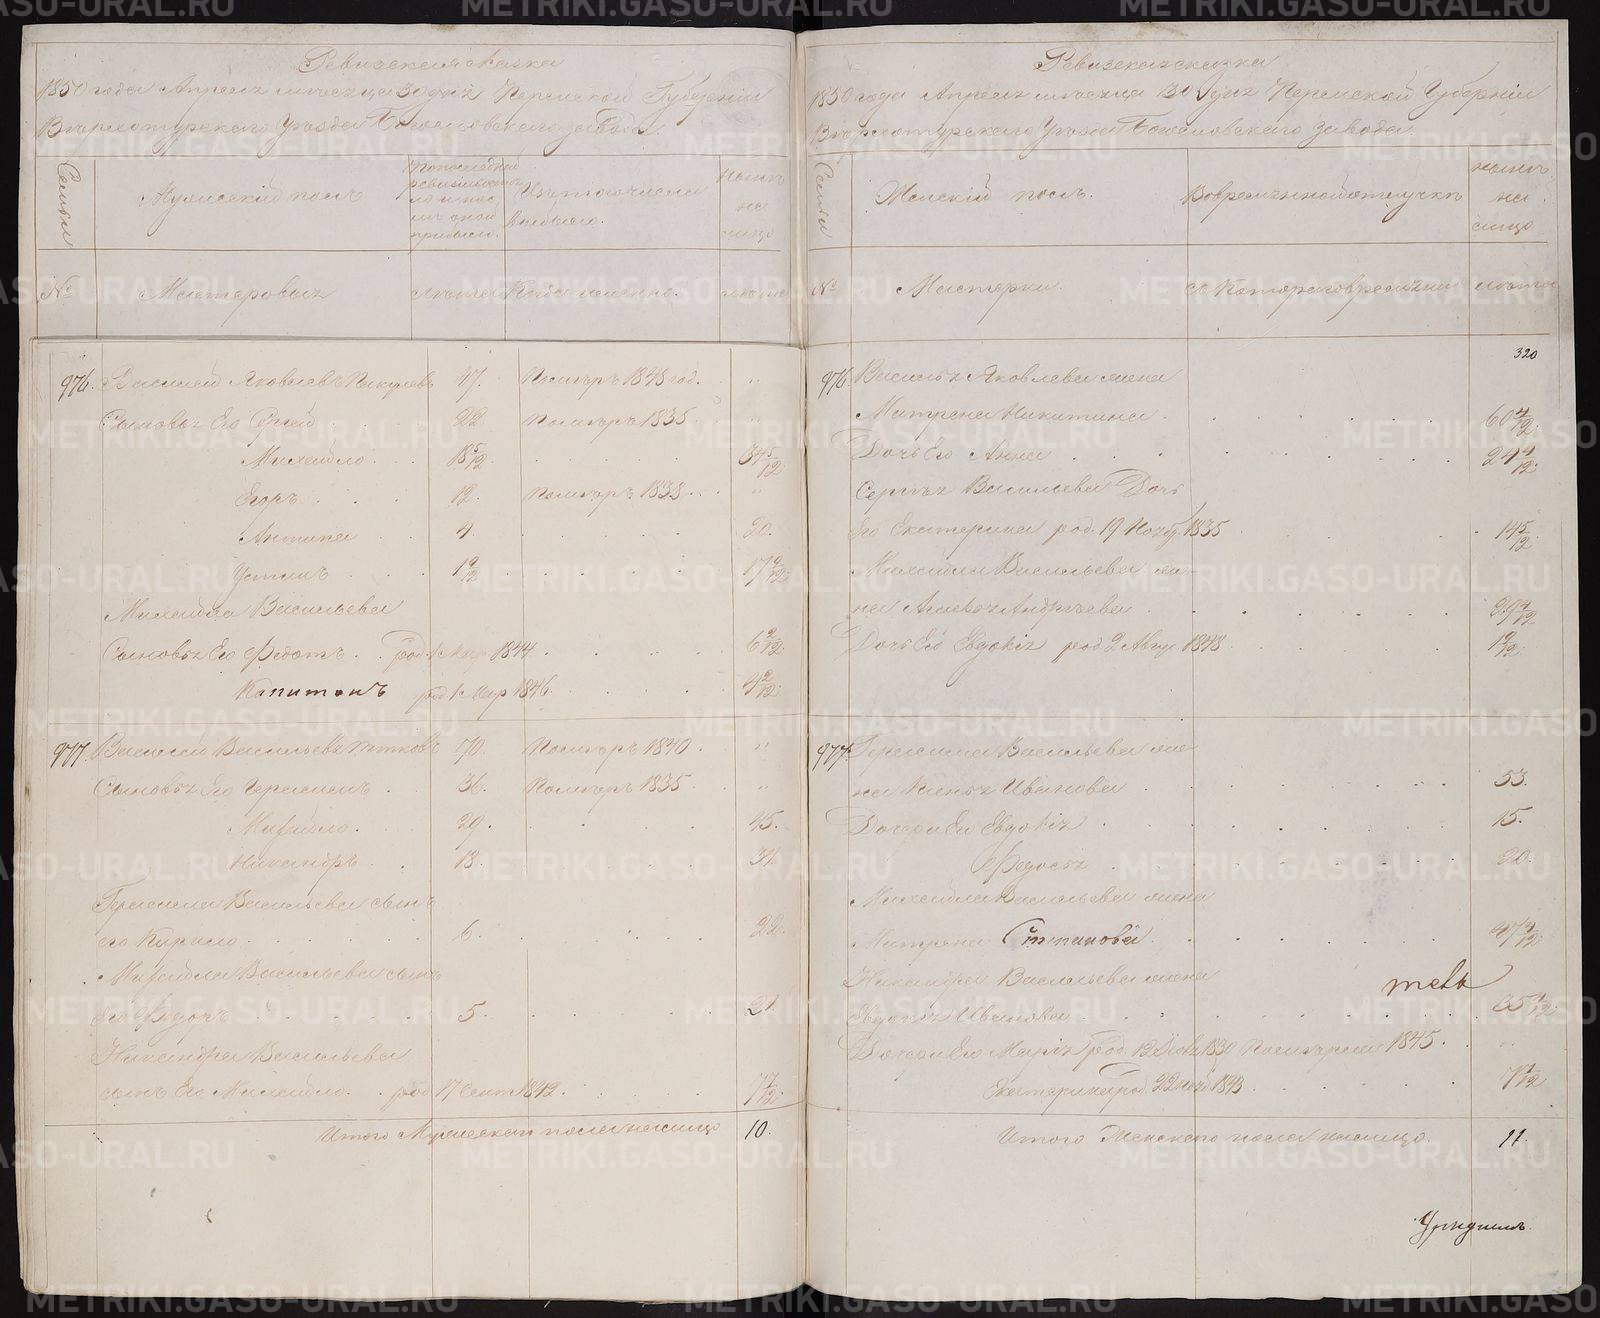 Ревизская сказка
1850 года Апреля месяца 30 дня Пермской Губернии
Верхотурского Уезда Богословского завода
Семьи
Мужский полъ
По последней ревизии состояло и после оной прибыло
Изъ того числа выбыло
Ныне на лицо
№
Мастеровые
лета
Когда именно
лета
976. Василий Яковлевъ 47. Померъ 1848 год. "
Сыновья Его Сергей 22 Померъ 1835 "
Михайло 18 5/12 34 5/12
Егоръ 12. Померъ 1838 "
Антипа 4 20.
Устинъ 1 2/12 17 2/12
Михайла Васильева
Сыновья Его Федотъ род. 1 Мар 1844 6 2/12
Капитонъ род 1 Мар 1846. 4 2/12
977 Василий Васильевъ Титовъ 70. Померъ 1840. "
Сыновья Его Герасимъ 36. Померъ 1835 "
Михайло 29. 45.
Никандръ 18. 34.
Герасима Васильева сынъ
его Кирило 6. 22.
Михайла Васильева сынъ
Его Федотъ 5. 21.
Никандра Васильева
сынъ Его Михайло род 17 Сент 1842. 7 7/12
Итого Мужеска пола на лицо 10.
Ревизская сказка
1850 года Апреля месяца 30 дня Пермской Губернии
Верхотурского Уезда Богословского завода
Семьи
Женский полъ.
Во временной отлучке
Ныне на лицо
№
Мастерки
съ Котораго времени
лета
320
976 Василья Яковлева жена
Матрена Никитина 60 4/12
Дочь Его Анна 24 4/12
Сергея Васильева Дочь
Его Екатерина род. 19 Нояб. 1835 14 5/12
Михайла Васильева же-
на Андреева
Дочь Его Евдокия род 2 Авгу. 1848
977. Герасима Васильева же-
на Ивановна 53.
Дочери Его Евдокия 15.
Федосья 20.
Михайла Васильева жена
Матрена Степанова 47 4/12
Никандра Васильева жена
Евдокия Иванова 35 4/12
Дочери Его Марья род. 1830 Померла 1845. "
Екатерина род. 22 Нояб 1843
Итого Женского пола на лицо. 11.
METRIKI.GASO-URAL.RU